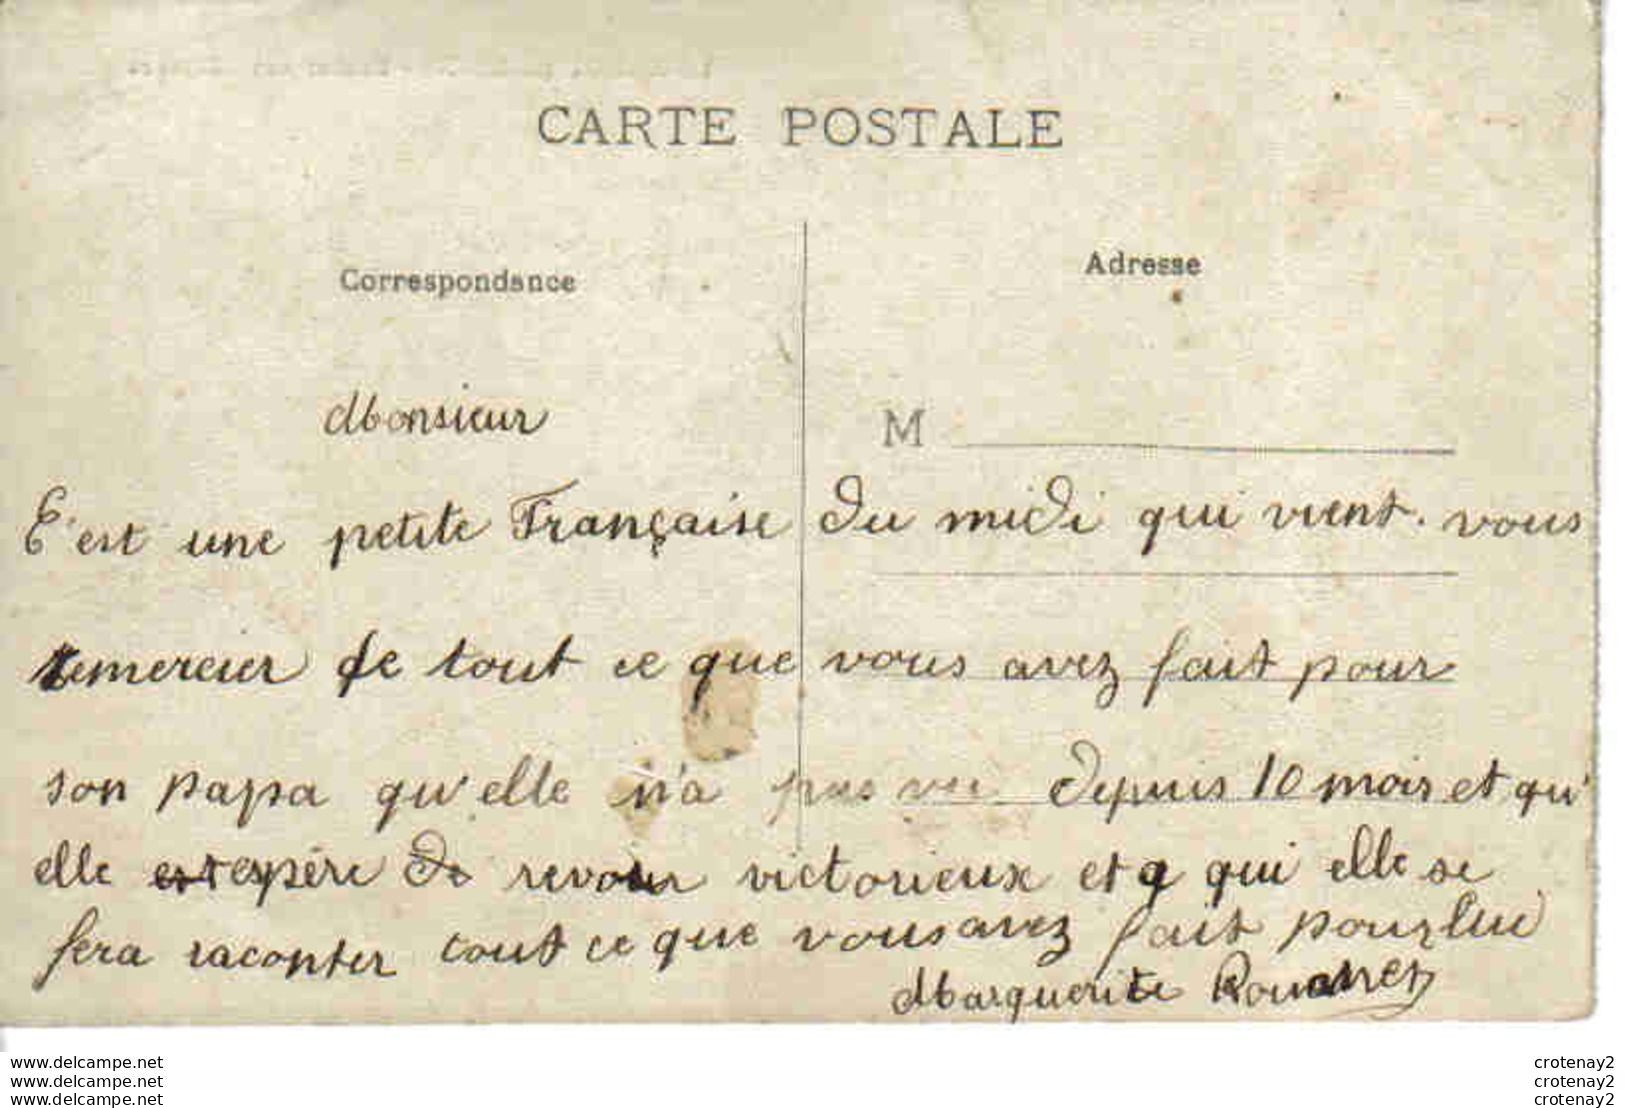 CARTE POSTALE
Correspondance
Adresse
Monsieur
M
C'est une petite Française du midi qui vient. vous
remercier de tout ce que vous avez fait pour
son papa qu'elle n'a pas vu depuis 10 mois et qu'
elle est espère de revoir victorieux et q qui elle se
fera raconter tout ce que vous avez fait pour lui
Marguerite
www.delcampe.net
www.delcampe.net
www.delcampe.net
crotenay2
crotenay2
crotenay2